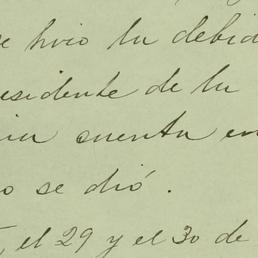 se hizo la debid
residente de la
cuenta en
o se dió.
, el 29 y el 30 de